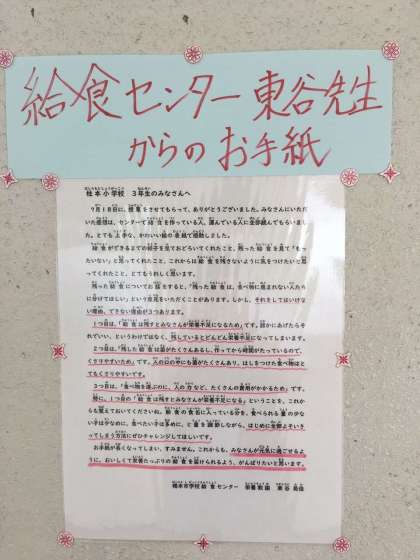 給食センター 東谷先生
からのお手紙
桂本小学校 3年生のみなさんへ
7月18日に、授業をさせてもらって、ありがとうございました。みなさんにいただ
いた感想は、センターで給食を作っている人、運んでいる人に全部読んでもらいまし
た。とても上手な、かわいい絵の手紙で感動しました。
給食ができるまでの様子を見ておどろいてくれたこと、残った給食を見て「もっ
たいない」と思ってくれたこと、これからは給食を残さないように気をつけたいと思
ってくれたこと、とてもうれしく思います。
残った給食についてお話をすると、「残った給食は、食べ物に困まれない人たち
に分けてほしい」という意見をいただくことがあります。しかし、それをしてはいけな
い理由、できない理由が3つあります。
1つ目は、「給食は残すとみなさんが栄養不足になるため」です。誰かにあげたらそ
れでいい、というわけではなく、残しているとどんどん栄養不足になってしまいます。
2つ目は、「残した給食は菌がたくさんあるし、作ってから時間がたっているので、
くさりやすいため」です。人の口の中にも菌がたくさんあり、はしをつけた食べ物はと
てもくさりやすいです。
3つ目は、「食べ物を運ぶのに、人の力など、たくさんの費用がかかるため」です。
特に、1つ目の「給食は残すとみなさんが栄養不足になる」ということを、これ
からも覚えておいてくださいね。給食の食缶に入っている分を、食べられる量の少な
い子は少なめに、食べたい子は多めに、と量を調節しながら、はじめに全部よそいき
ってしまう方法にぜひチャレンジしてほしいです。
お手紙が長くなってしまい、すみません。これからも、みなさんが元気に過ごせるよ
うに、おいしくて栄養たっぷりの給食を届けられるよう、がんばりたいと思います。
橋本市学校給食センター 栄養教諭 東谷